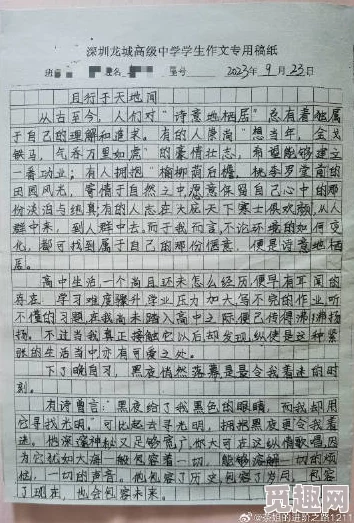 深圳龙城高级中学学生作文专用稿纸
班 姓名 座号 2023年9月23日
且行于天地间
从古至今，人们对“诗意地栖居”总有着他属
于自己的理解和追求。有的人像尚“想当年，金戈
铁马，气吞万里如虎”的豪情壮志，希望能够建立
一番功业；有人拥抱“榆柳荫后檐，桃李罗堂前”的
田园风光，寄情于自然之中愿意保留自己心中的那
份淡泊与纯真有的人志在大庇天下寒士俱欢颜，从人
群中来，到人群中去，而于我而言，不论环境的如何变
化，都可找到属于自己的那份惬意，便是诗意地栖
居。
高中生活，一个尚且还未怎么经历便早有耳闻的
存在：学习难度骤升学业压力加大写不完的作业听
不懂的习题在我尚未踏入高中之际便已传得沸沸扬
扬。不过当我真正接触它以后却发现，纵使是这种紧
张的生活当中亦有可爱之处。
下了晚自习，黑夜悄然落幕是最令我着迷的时
刻。
有诗曾言：“黑夜给了我黑色的眼睛，而我却用
它寻找光明。”可比起去寻光明，拥抱黑夜更令我着
迷。他深邃神秘又足够宽广你大可在这纵情歌唱因
为它犹如大海一般包容着一切，能够溶解一切的烦
恼，一切的声音。他包容了历史包容了岁月，包容
了现在，也会包容未来。
觅趣网
@茶姐的进阶之路1211